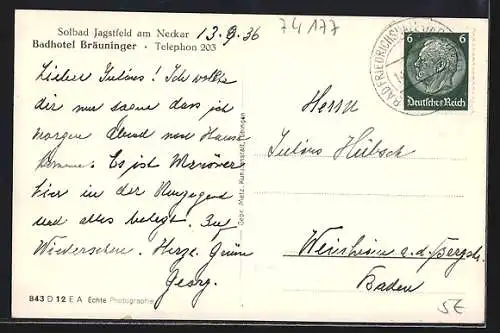 Solbad Jagstfeld am Neckar 13.9.36
Badhotel Bräuninger · Telephon 203
74177
Lieber Julius! Ich wollte
dir nur sagen dass ich
morgen Abend nach Hause
komme. Es ist Manöver
hier in der Umgegend
und alles belegt. Auf
Wiedersehen. Herzl. Grüße
Georg.
843 D 12 E A Echte Photographie
Gebr. Metz, Kunstanstalt, Tübingen
BAD FRIEDRICHSHALL
6 6
Deutsches Reich
Herrn
Julius Hübsch
Weinheim a.d. Bergstr.
Baden
5E